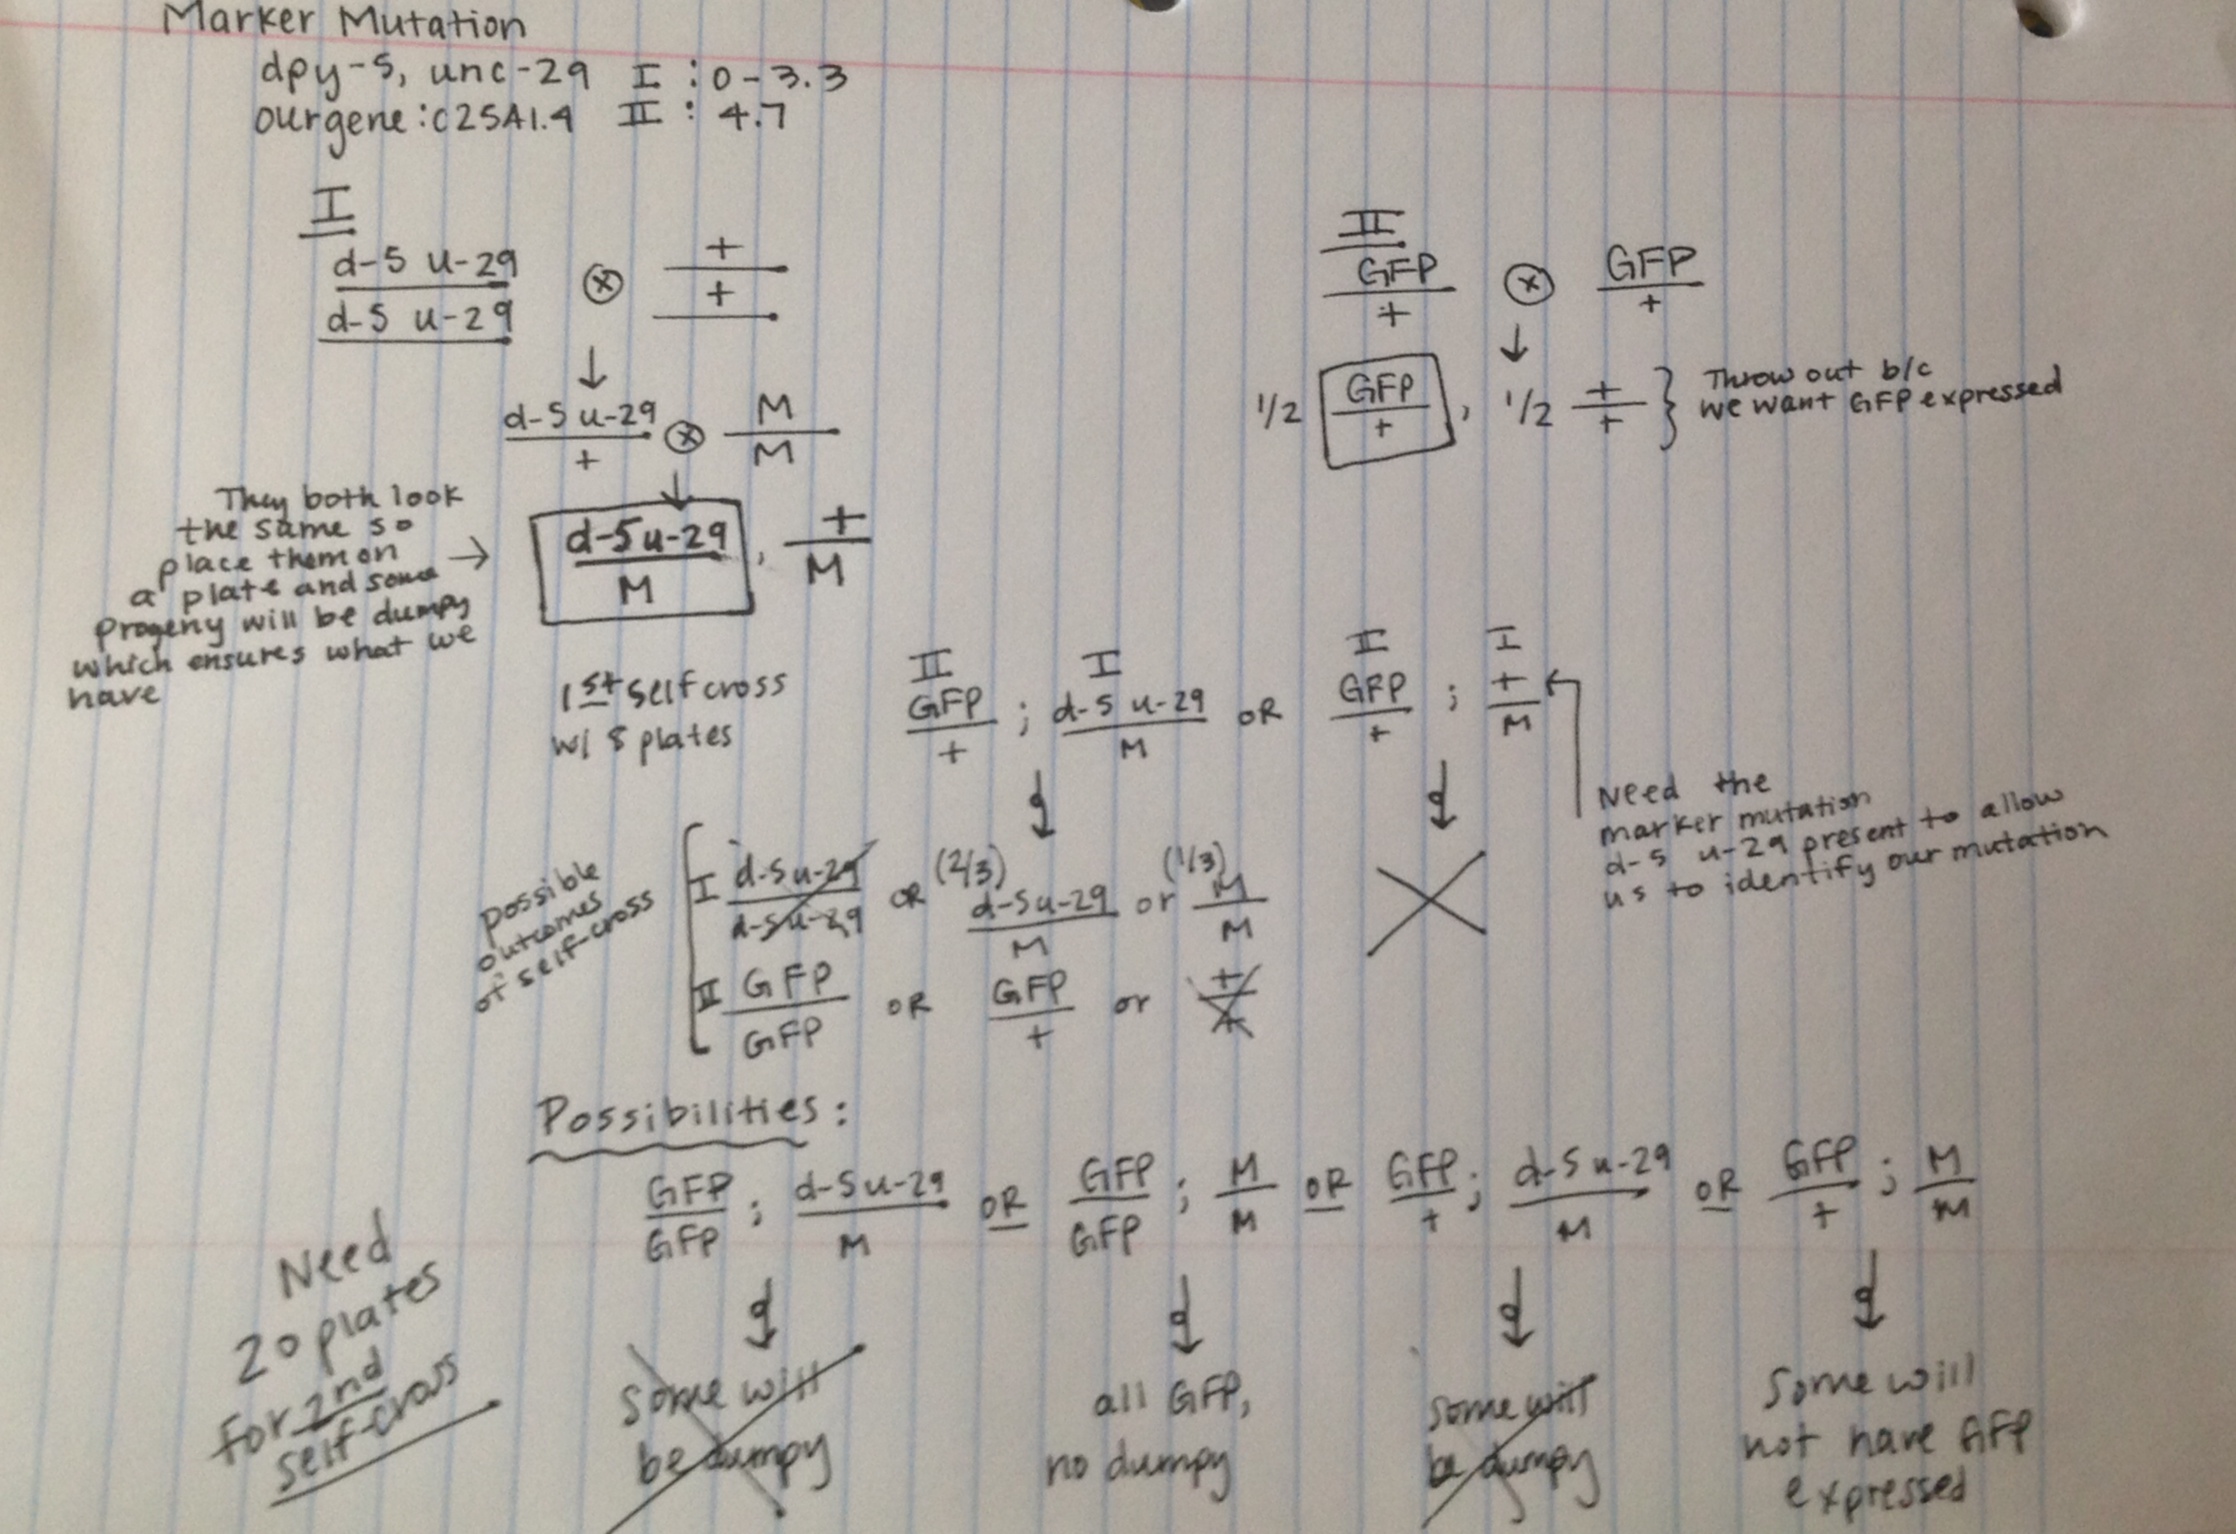 Marker Mutation
dpy-5, unc-29 I : 0-3.3
ourgene: c25A1.4 II : 4.7
I
d-5 u-29
d-5 u-29
⊗
+
+
↓
d-5 u-29
+
⊗
M
M
↓
d-5 u-29
M
,
+
M
They both look
the same so
place them on →
a plate and some
progeny will be dumpy
which ensures what we
have
II
GFP
+
⊗
GFP
+
↓
1/2
GFP
+
, 1/2
+
+
} Throw out b/c
we want GFP expressed
1st self cross
w/ 8 plates
II
GFP
+
;
I
d-5 u-29
M
OR
II
GFP
+
;
I
+
M
Need the
marker mutation
d-5 u-29 present to allow
us to identify our mutation
possible
outcomes
of self-cross
I
d-5 u-29
d-5 u-29
OR
(2/3)
d-5 u-29
M
or
(1/3)
M
M
II
GFP
GFP
OR
GFP
+
or
+
+
Possibilities:
GFP
GFP
;
d-5 u-29
M
OR
GFP
GFP
;
M
M
OR
GFP
+
;
d-5 u-29
M
OR
GFP
+
;
M
M
Some will
be dumpy
all GFP,
no dumpy
some will
be dumpy
Some will
not have GFP
expressed
Need
20 plates
for 2nd
self-cross